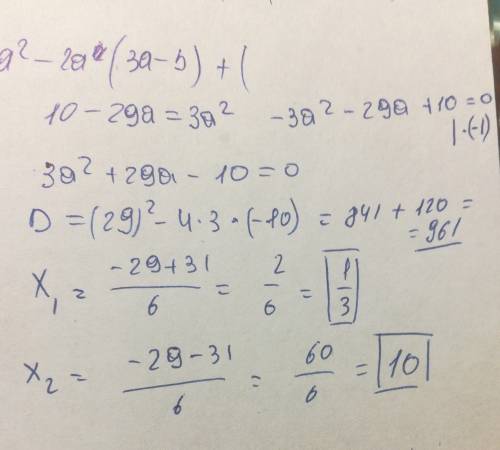 a² - 2a (3a - b) + (
10 - 29a = 3a² -3a² - 29a + 10 = 0
|·(-1)
3a² + 29a - 10 = 0
D = (29)² - 4·3·(-10) = 841 + 120 =
= 961
X₁ = \frac{-29+31}{6} = \frac{2}{6} = \frac{1}{3}
X₂ = \frac{-29-31}{6} = \frac{60}{6} = 10